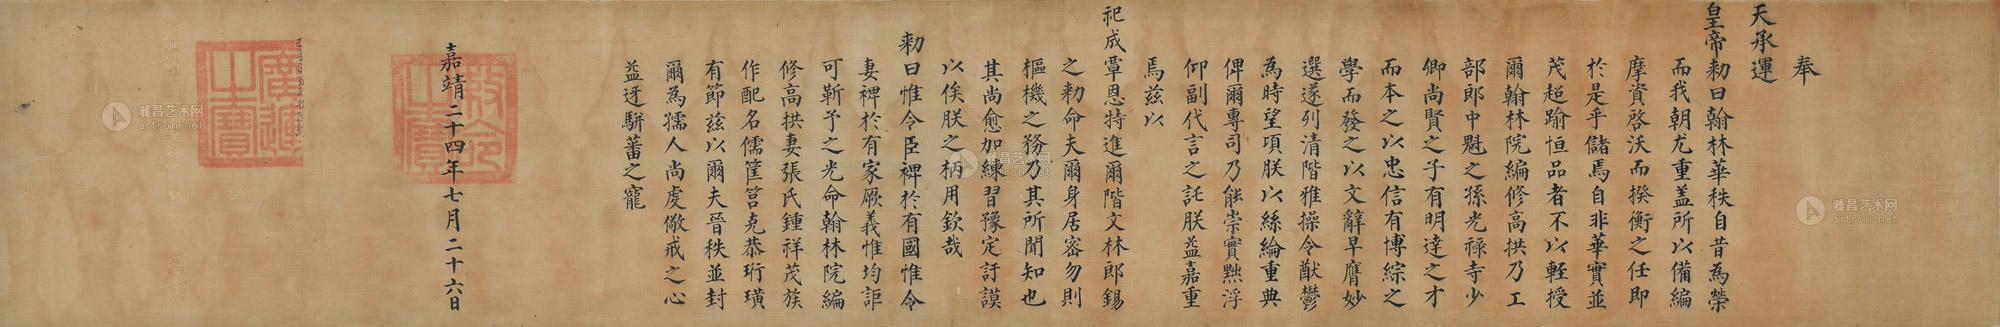 奉
天承運
皇帝勑曰翰林華秩自昔為榮
而我朝尤重盖所以備編
摩資啓沃而揆衡之任即
於是乎儲焉自非華實並
茂超踰恒品者不以輕授
爾翰林院編修高拱乃工
部郎中魁之孫光祿寺少
卿尚賢之子有明達之才
而本之以忠信有博綜之
學而發之以文辭早膺妙
選遂列清階雅操令猷鬱
為時望項朕以絲綸重典
俾爾專司乃能崇實黜浮
仰副代言之託朕益嘉重
焉茲以
祀成覃恩特進爾階文林郎錫
之勑命夫爾身居密勿則
樞機之務乃其所聞知也
其尚愈加練習豫定訏謨
以俟朕之柄用欽哉
勑曰惟令臣裨於有國惟令
妻裨於有家厥義惟均詎
可靳予之光命翰林院編
修高拱妻張氏鍾祥茂族
作配名儒筐筥克恭珩璜
有節茲以爾夫晉秩並封
爾為孺人尚虔儆戒之心
益迓駢蕃之寵
嘉靖二十四年七月二十六日
敕命之寶
廣運之寶
雅昌艺术网
artron.net
雅昌艺术网
artron.net
雅昌艺术网
artron.net
雅昌艺术网
artron.net